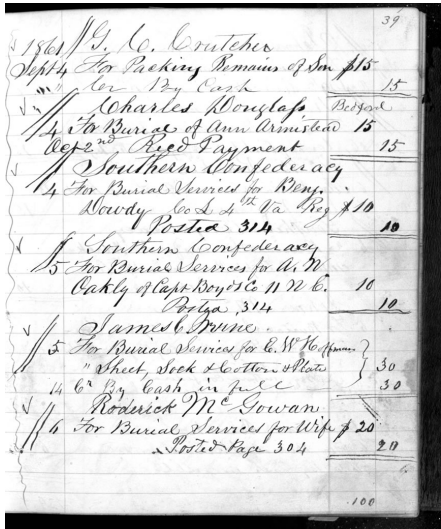 39
1861 G. C. Crutcher
Sept 4 For Packing Remains of Son $15
" " Cr By Cash 15
" Charles Douglass Bedford
4 For Burial of Ann Armistead 15
Oct 2nd Recd Payment 15
Southern Confederacy
4 For Burial Services for Benj.
Dowdy Co L 4th Va Reg $10
Posted 314 10
Southern Confederacy
5 For Burial Services for A. N
Oakly of Capt Boyds Co 11 N C. 10
Posted, 314 10
James C Irvine.
5 For Burial Services for C. W Hoffman
" Sheet, Sock & Cotton & Plate 30
14 Cr By Cash in full 30
Roderick McGowan
6 For Burial Services for Wife $20
Posted Page 304 20
100